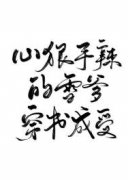 心狠手辣
的雪爹
穿书成受